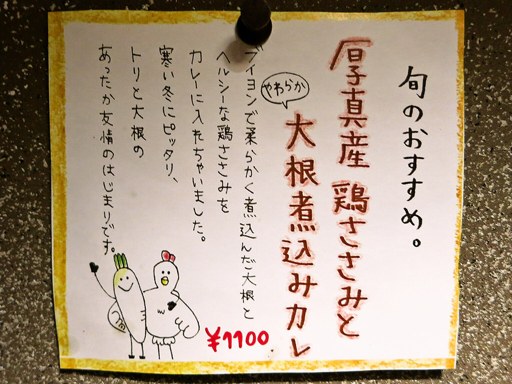 旬のおすすめ。
厚真産 鶏ささみと
やわらか
大根煮込みカレ
ブイヨンで柔らかく煮込んだ大根と
ヘルシーな鶏ささみを
カレーに入れちゃいました。
寒い冬にピッタリ、
トリと大根の
あったか友情のはじまりです。
¥1100